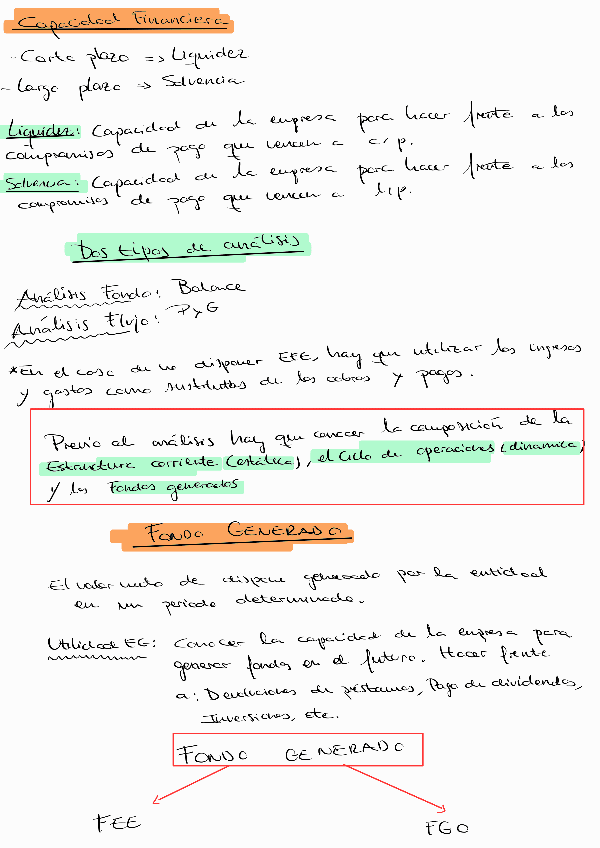 Capacidad Financiera
- Corto plazo => Liquidez
- Largo plazo => Solvencia
Liquidez: Capacidad de la empresa para hacer frente a los
compromisos de pago que vencen a c/p.
Solvencia: Capacidad de la empresa para hacer frente a los
compromisos de pago que vencen a l/p.
Dos tipos de análisis
Análisis Fondo: Balance
Análisis Flujo: PyG
*En el caso de no disponer EFE, hay que utilizar los ingresos
y gastos como sustitutos de los cobros y pagos.
Previo al análisis hay que conocer la composición de la
Estructura corriente (estática), el Ciclo de operaciones (dinamica)
y los Fondos generados
FONDO GENERADO
El valor neto de generado por la entidad
en un periodo determinado.
Utilidad FG: Conocer la capacidad de la empresa para
generar fondos en el futuro. Hacer frente
a: Devoluciones de préstamos, Pago de dividendos,
Inversiones, etc.
FONDO GENERADO
FEE FGO